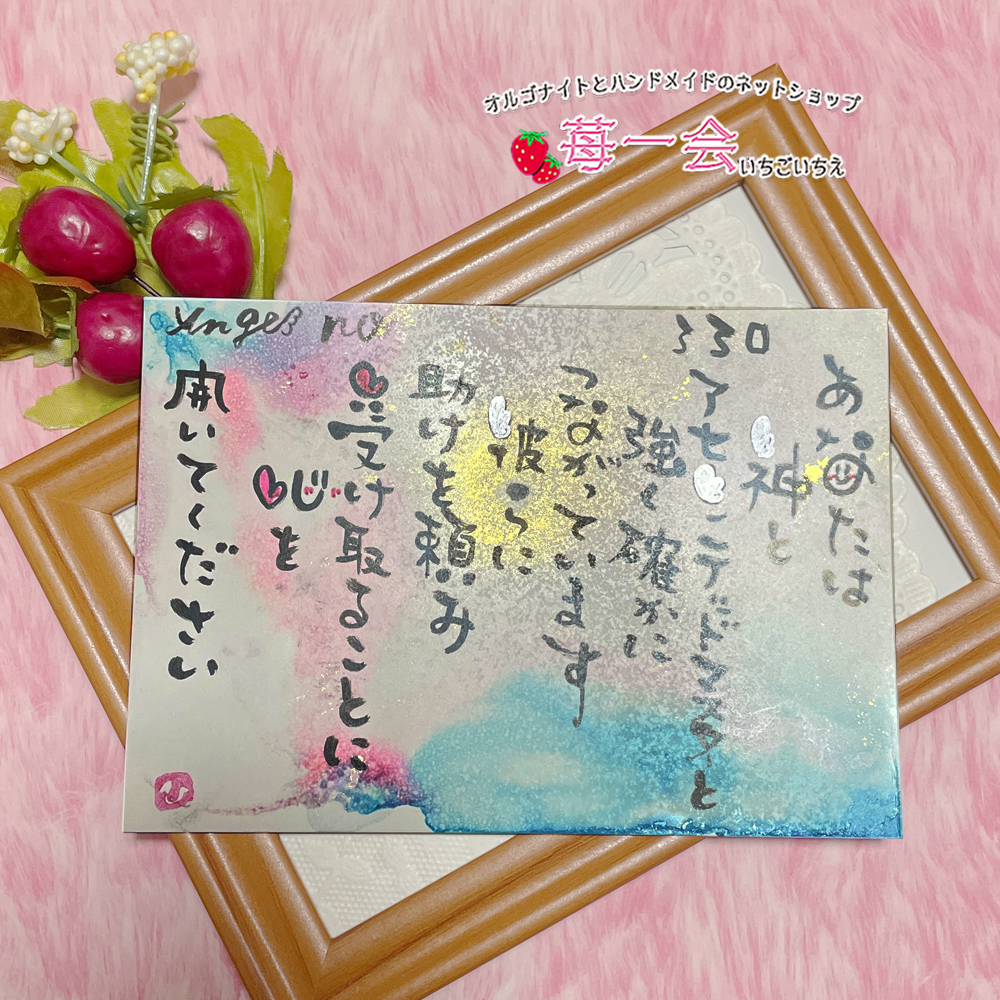 オルゴナイトとハンドメイドのネットショップ
苺一会
いちごいちえ
Angel no 330
あなたは
神と
アセンテドマスターと
強く確かに
つながっています
彼らに
助けを頼み
受け取ることに
心を
開いてください